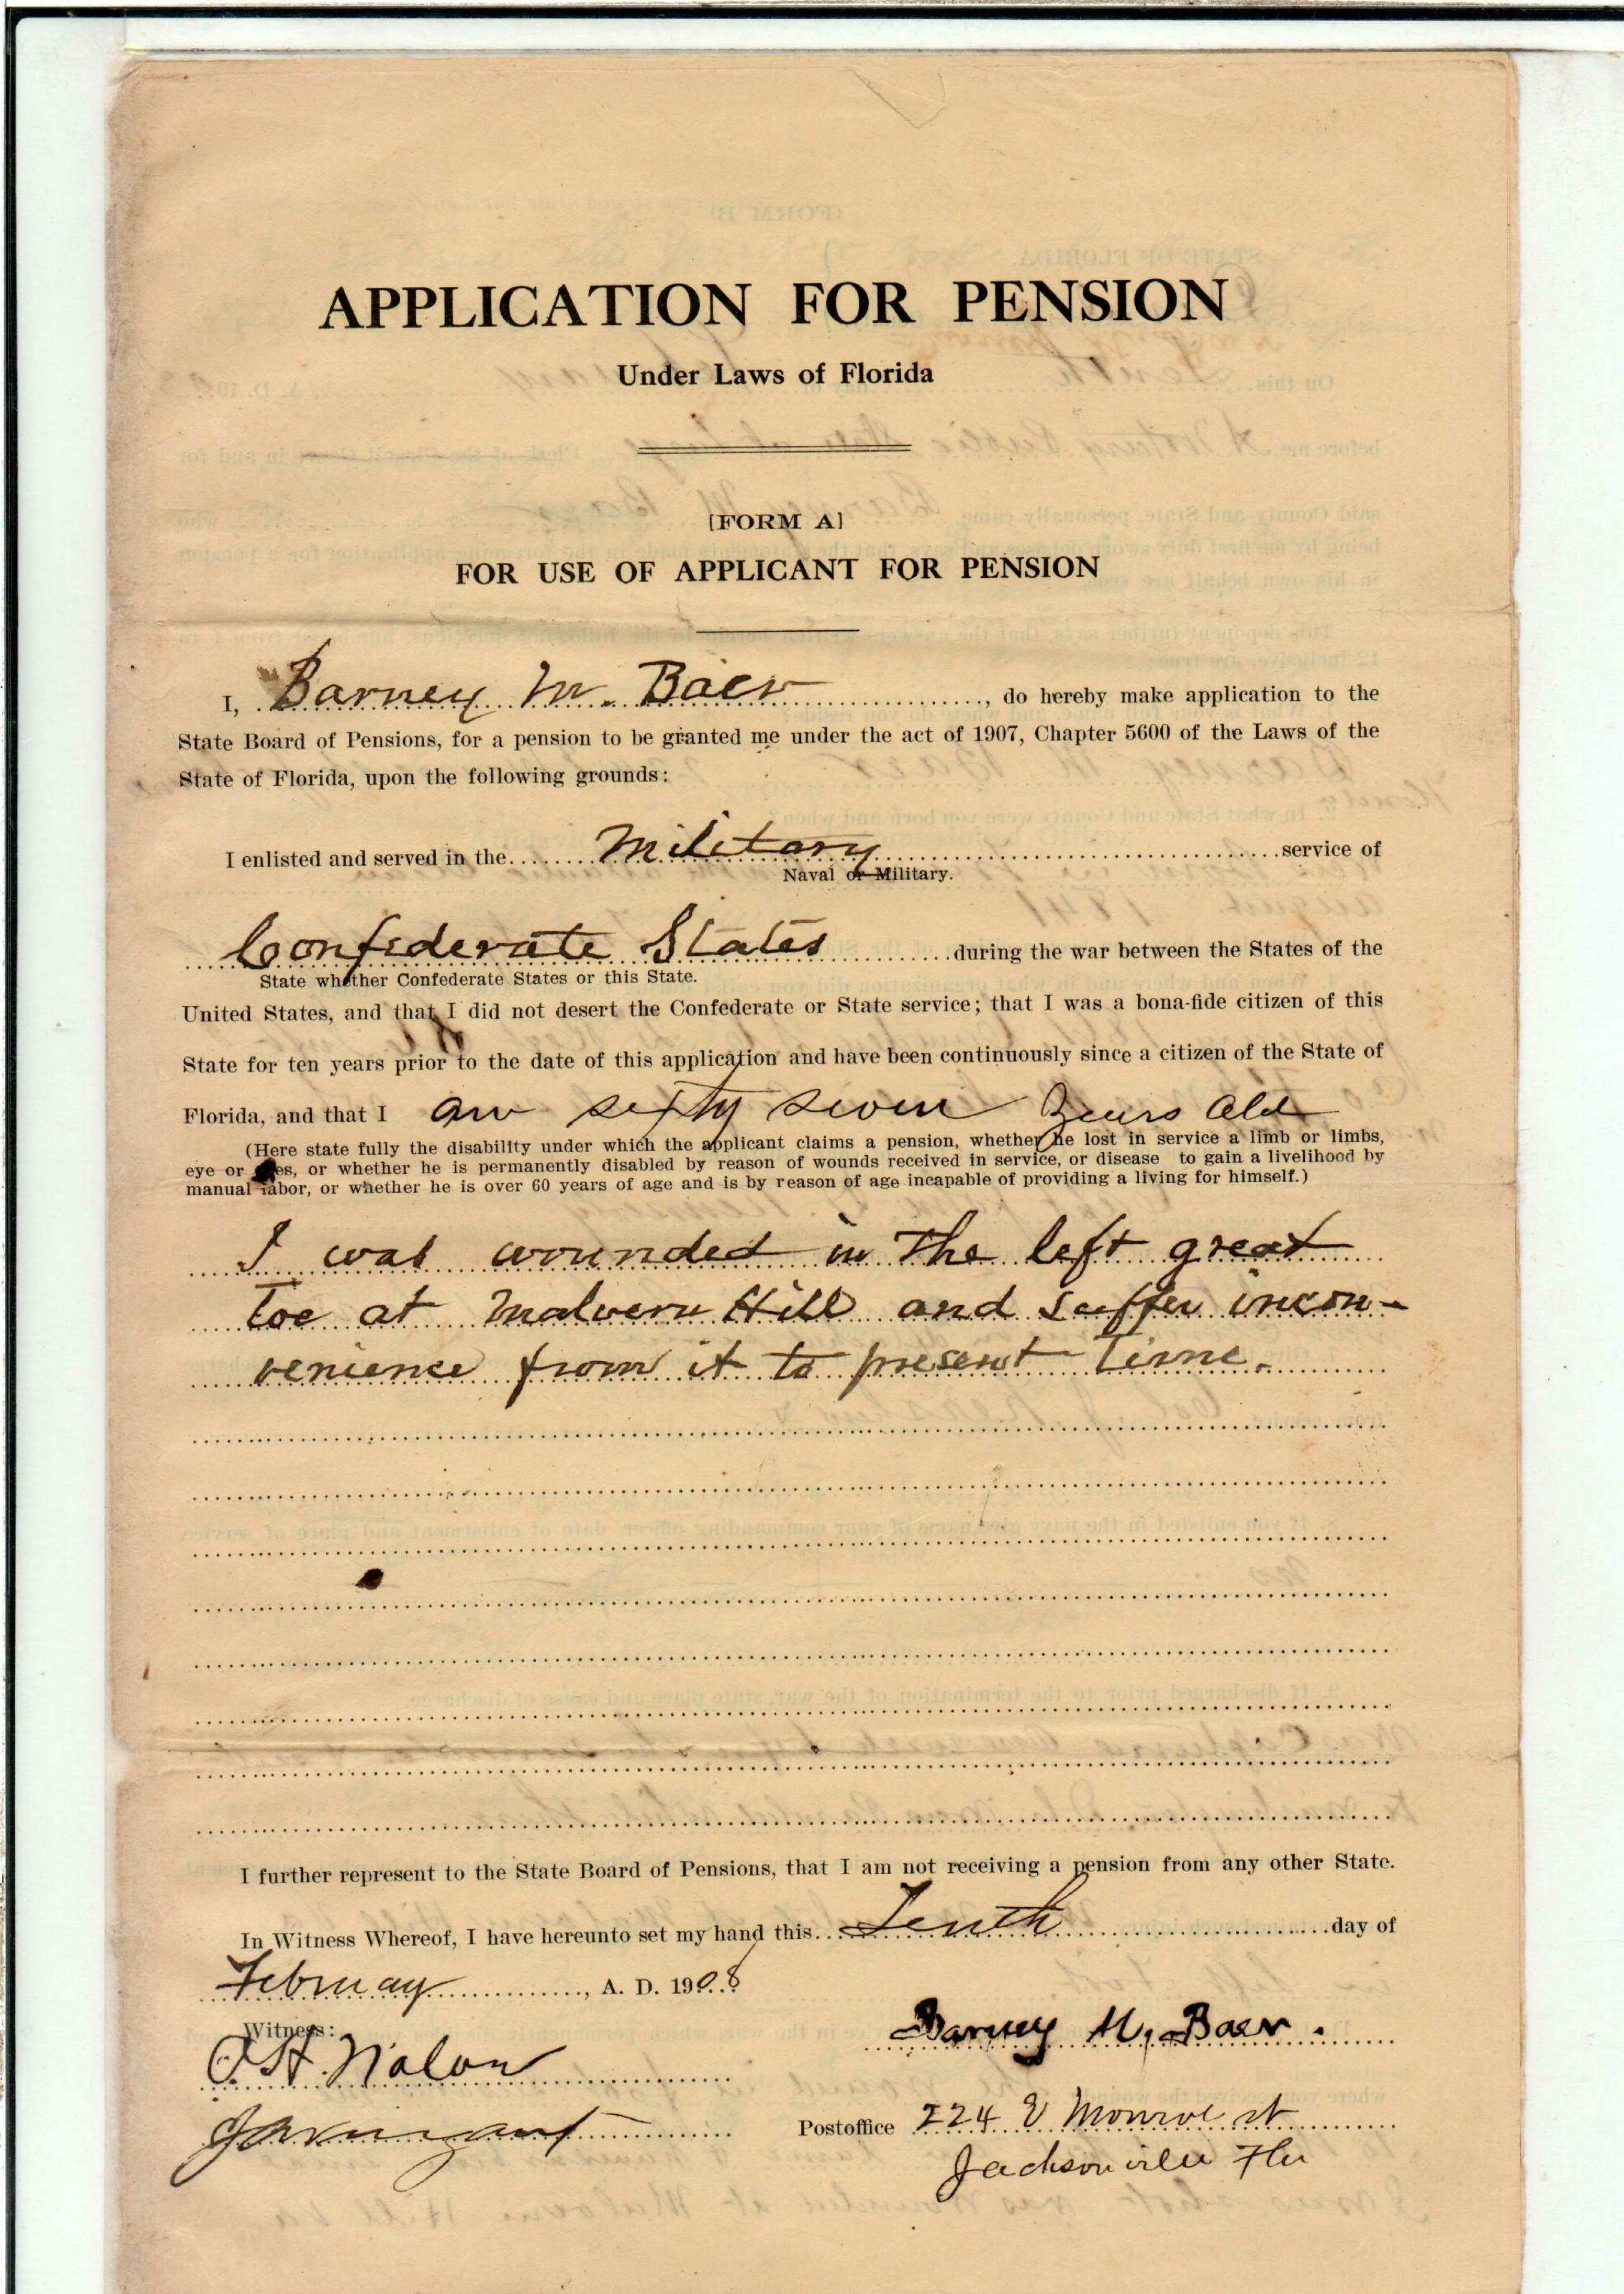 APPLICATION FOR PENSION
Under Laws of Florida
[FORM A]
FOR USE OF APPLICANT FOR PENSION
I, Barney M. Baer, do hereby make application to the
State Board of Pensions, for a pension to be granted me under the act of 1907, Chapter 5600 of the Laws of the
State of Florida, upon the following grounds:
I enlisted and served in the Military service of
Naval or Military.
Confederate States during the war between the States of the
State whether Confederate States or this State.
United States, and that I did not desert the Confederate or State service; that I was a bona-fide citizen of this
State for ten years prior to the date of this application and have been continuously since a citizen of the State of
Florida, and that I am sixty seven years old
(Here state fully the disability under which the applicant claims a pension, whether he lost in service a limb or limbs,
eye or eyes, or whether he is permanently disabled by reason of wounds received in service, or disease to gain a livelihood by
manual labor, or whether he is over 60 years of age and is by reason of age incapable of providing a living for himself.)
I was wounded in the left great
toe at Malvern Hill and suffer incon-
venience from it to present time.
I further represent to the State Board of Pensions, that I am not receiving a pension from any other State.
In Witness Whereof, I have hereunto set my hand this Tenth day of
February, A. D. 1908
Witness:
Barney M. Baer.
Nolan
Postoffice 224 E Monroe st
Jacksonville Fla